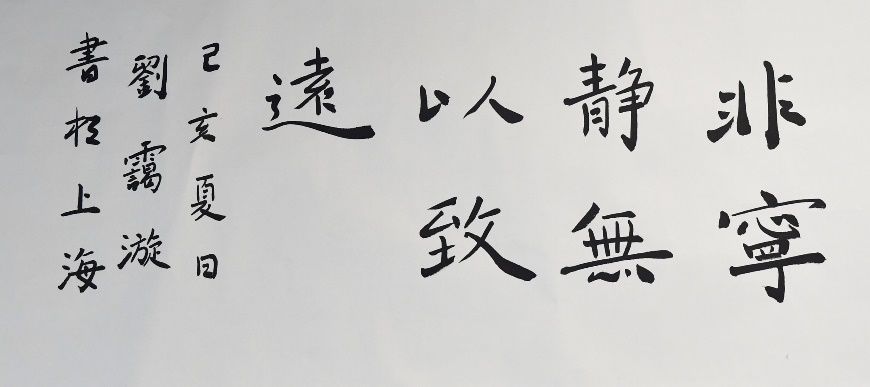 非寧
靜無
以致
遠
己亥夏日
劉靄漩
書於上海